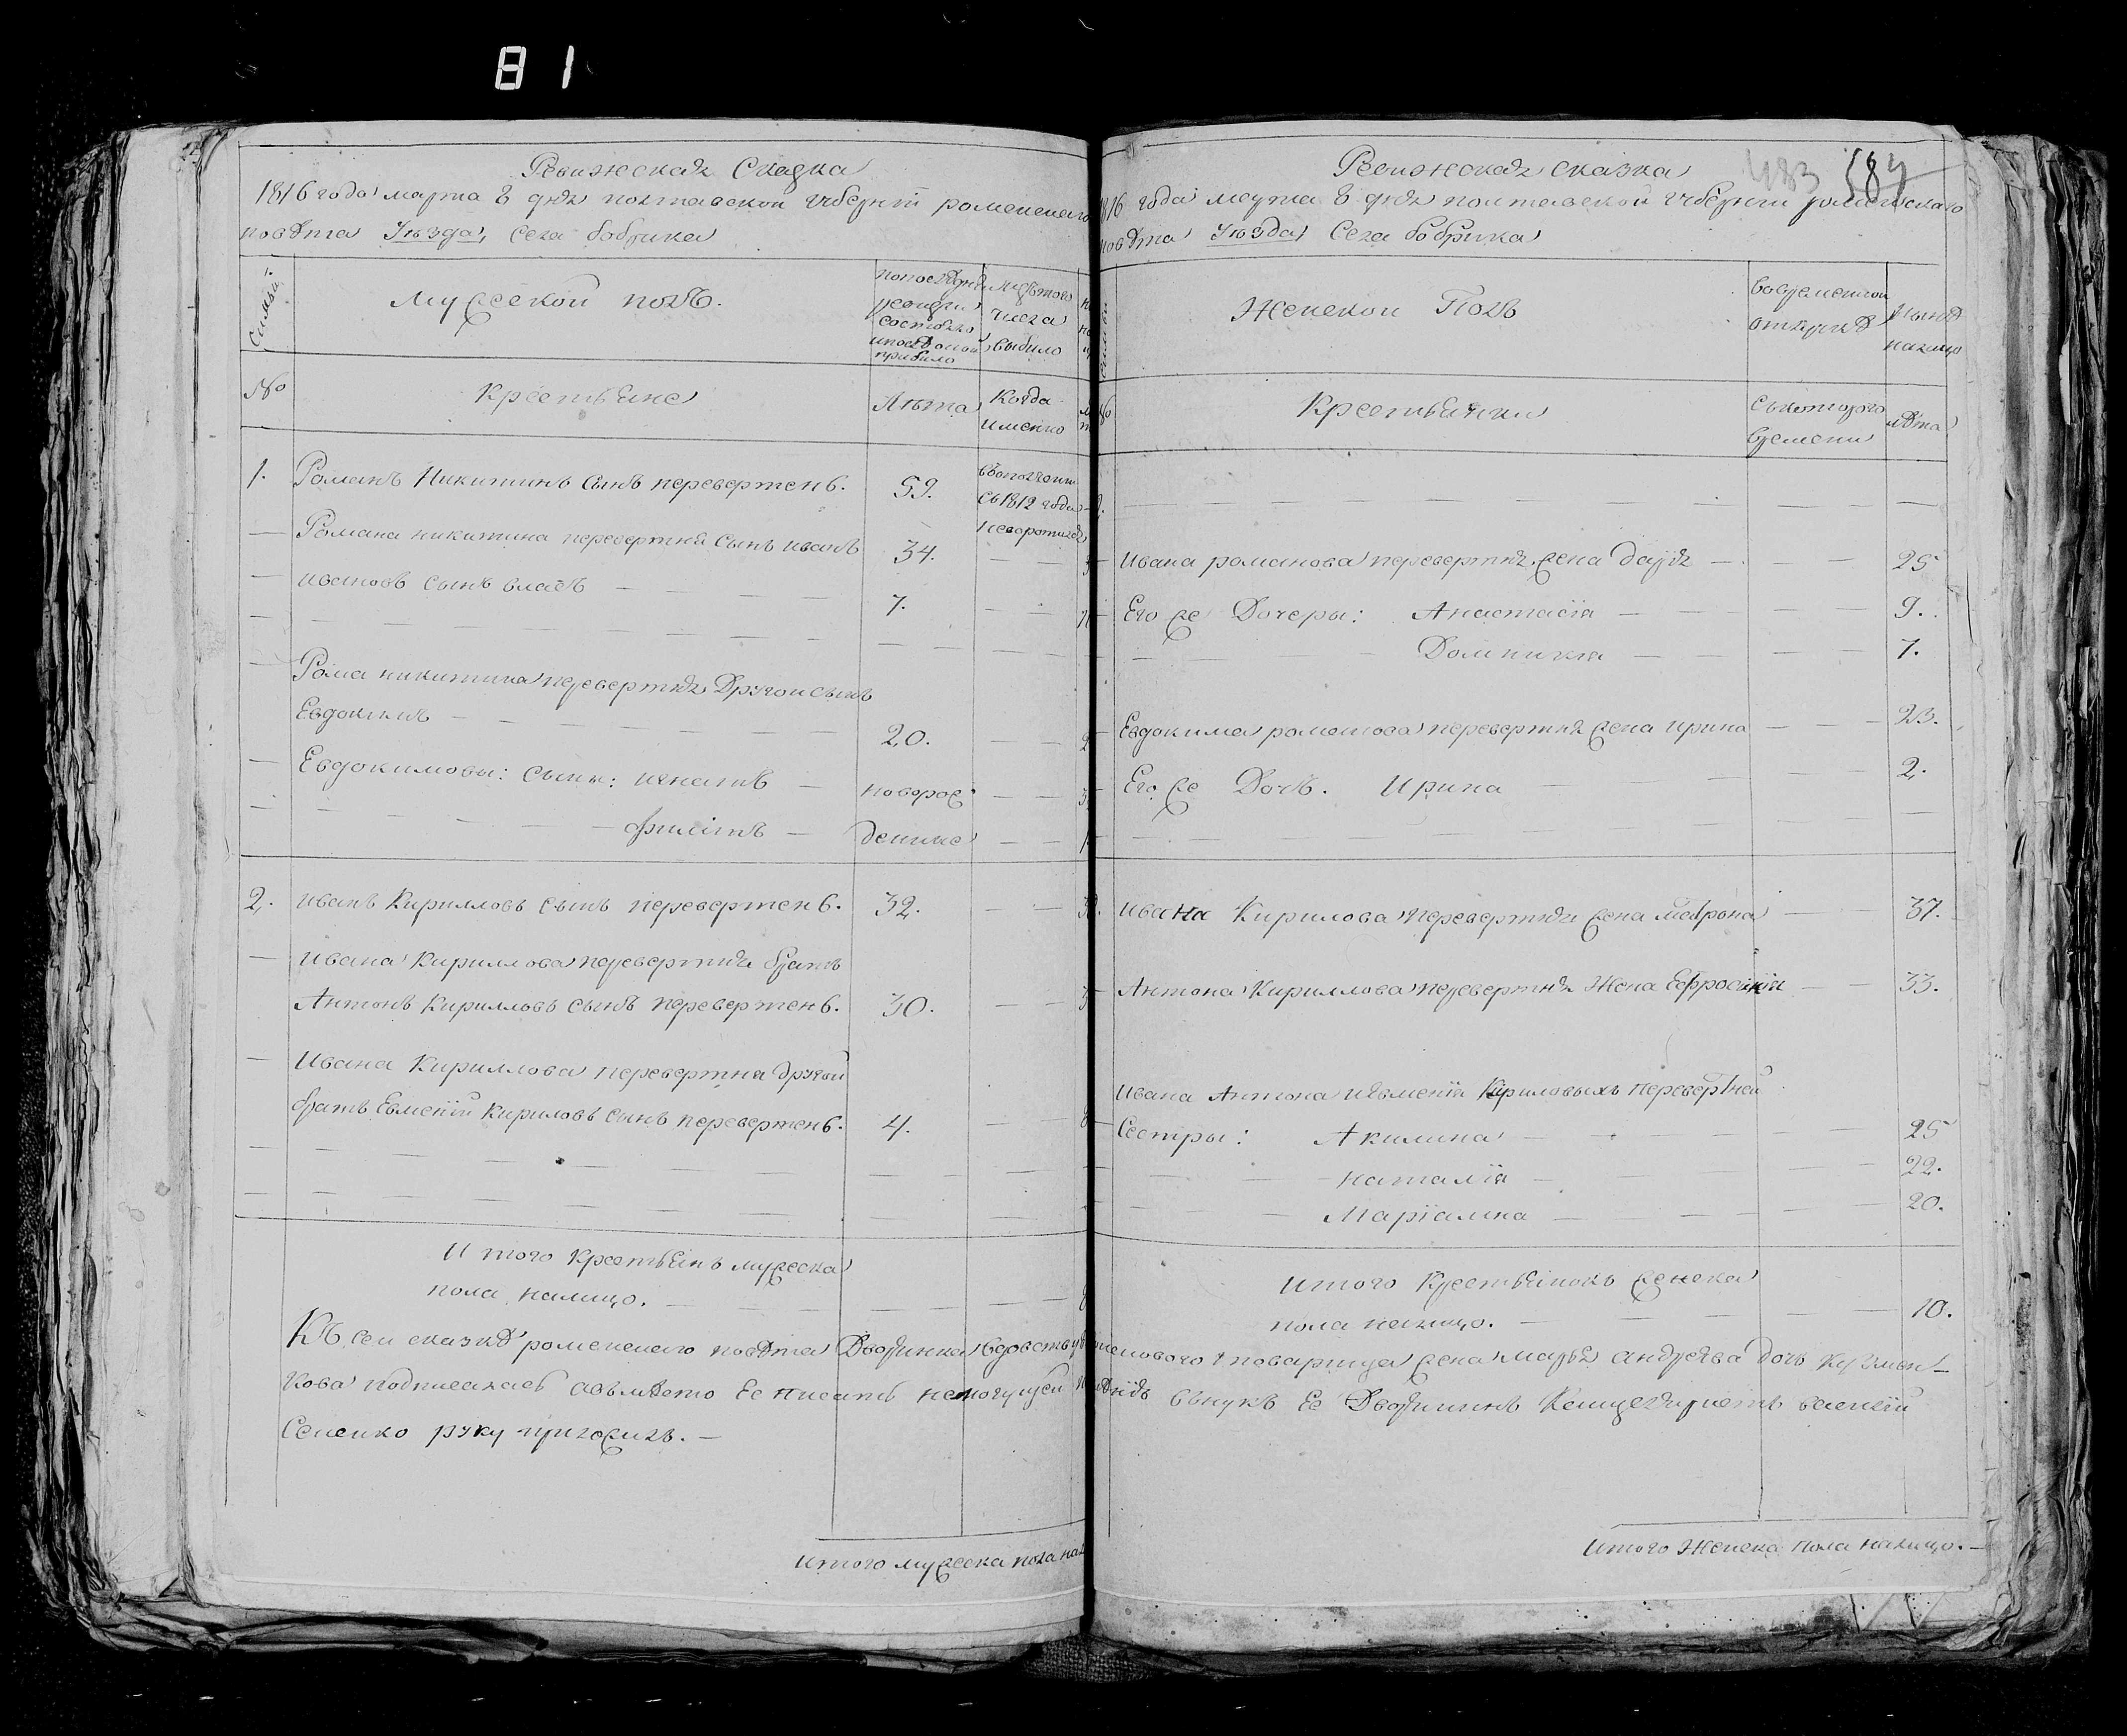 81
Ревижская Сказка
1816 года марта 8 дня полтавской губернїи роменского
повѣта Уѣзда, села бобрика
Семьи.
Мужеской полъ.
по последней
ревизии
состояло
и после оной
прибыло
Изъ того
числа
выбыло
№
Крестьяне
Лѣта
Когда
именно
1.
Романъ Никитинъ сынъ перевертень.
59.
въ ополчении
съ 1812 года
невротился
Романа никитина перевертня сынъ иванъ
34.
ивановъ сынъ власъ
7.
Рома никитина перевертня Другои сынъ
Евдокимъ
20.
Евдокимовы: сыны: игнатъ
новорож
филїпъ
денные
2.
иванъ Кирилловъ сынъ перевертень.
32.
ивана Кириллова перевертня братъ
Антонъ Кирилловъ сынъ перевертень.
30.
Ивана Кириллова перевертня другой
братъ Евмений Кириловъ сынъ перевертень.
4.
Итого крестьянъ мужеска
пола налицо.
Къ сеи сказкѣ роменского повѣта Дворянка вдовству
кова подписалась а вместо Ее писать немогущей
Сененко руку приложилъ.
Итого мужеска пола нал
483 584
Ревижская сказка
1816 года марта 8 дня полтавской губернїи роменского
повѣта Уѣзда, Села бобрика
Женской Полъ
во временной
отлучкѣ
Нынѣ
налицо
№
Крестьянки
Съ которого
времени
лѣта
Ивана романова перевертня жена дарїя
25
Его же Дочеры: Анастасїя
9.
Домникїя
7.
Евдокима романова перевертня жена ирина
23.
Его же Дочь. Ирина
2.
ивана Кирилова перевертня жена матрона
37.
Антона Кириллова перевертня Жена Ефросинїя
33.
Ивана Антона иевменїя Кириловыхъ перевертней
Сестры: Акилина
25
наталїя
22.
Марїамна
20.
Итого Крестьянокъ женска
пола налицо.
10.
товарища жена марья андреева дочь
внукъ Ее Дворянинъ
Итого Женска пола налицо.